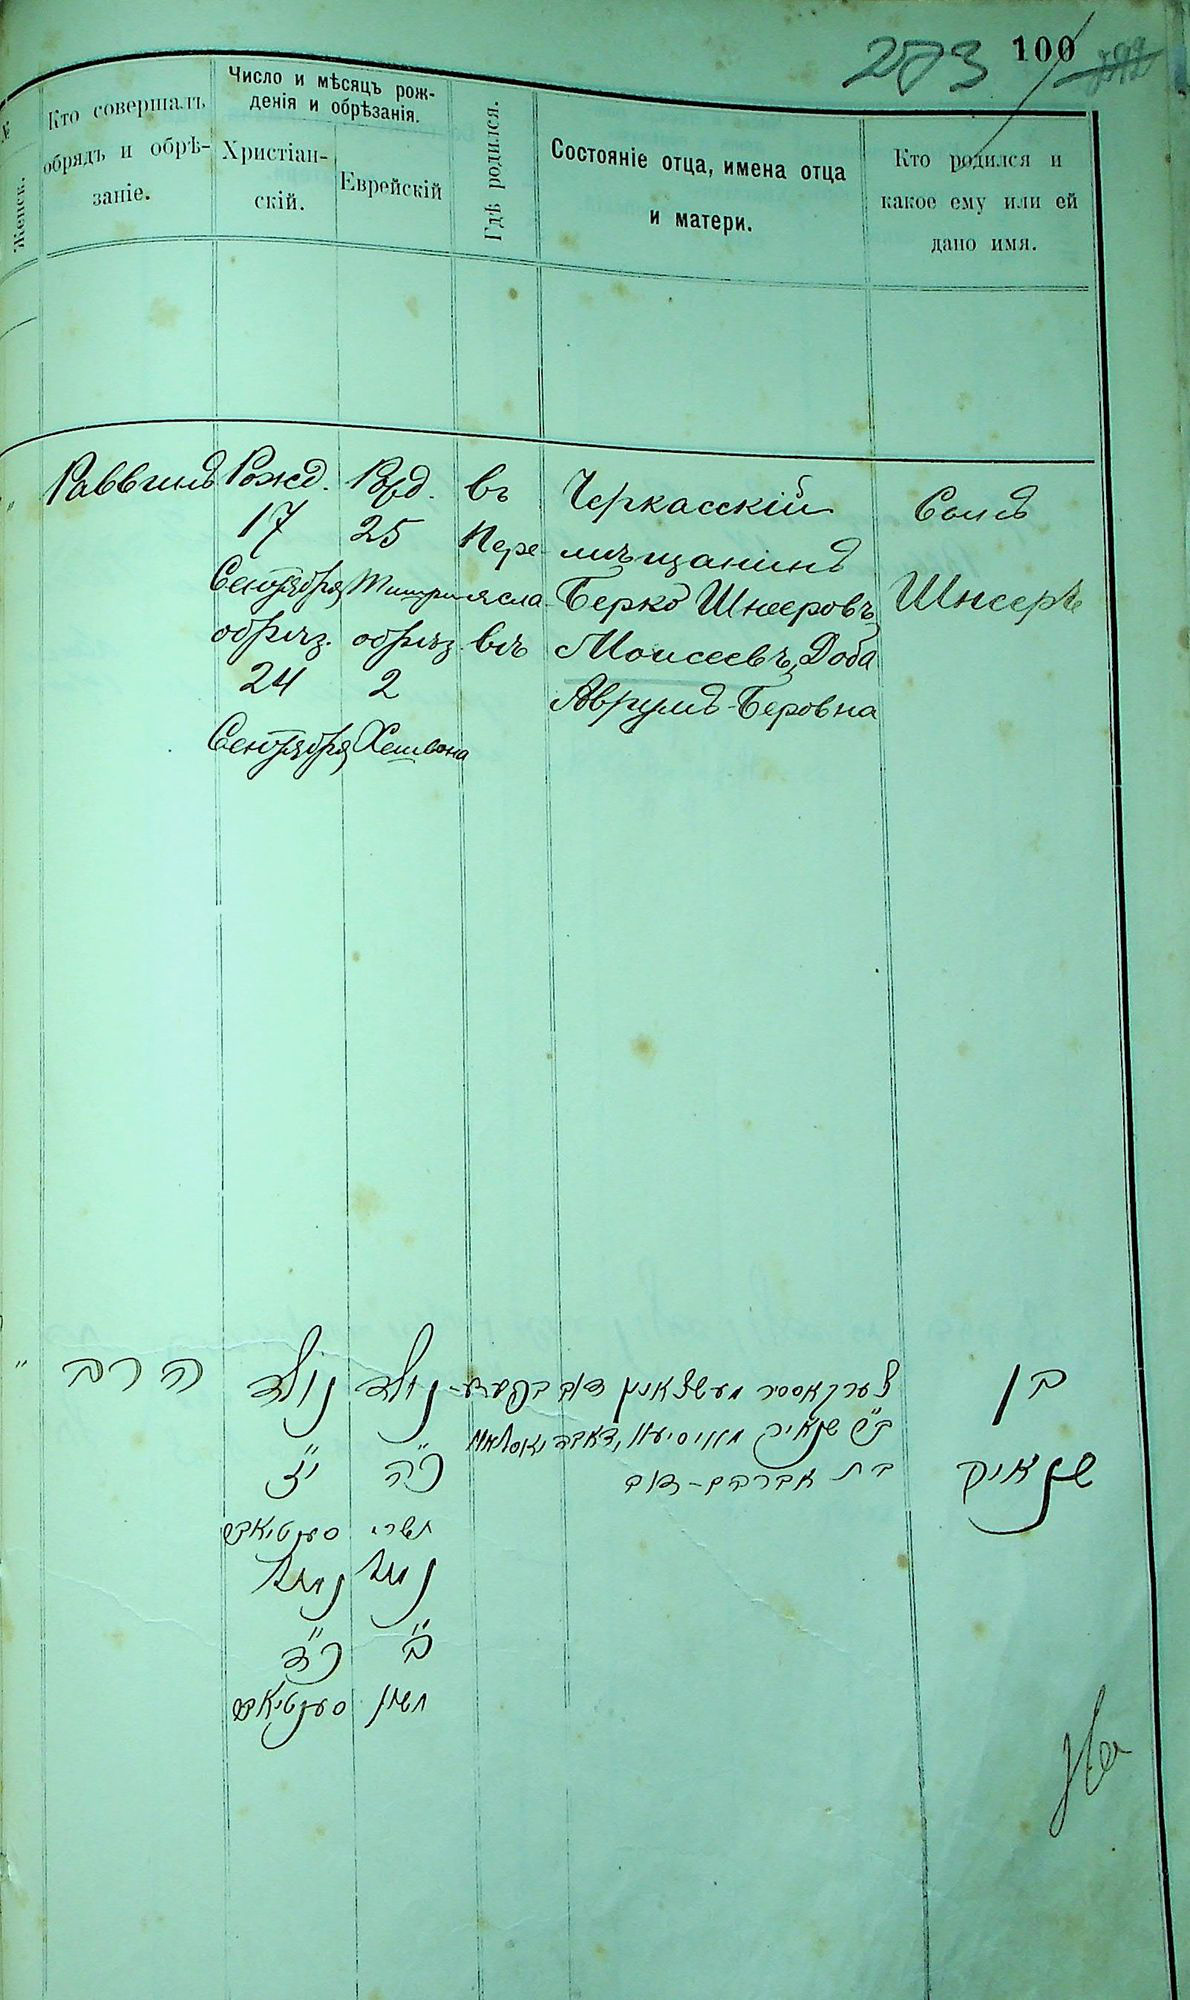 273 100
№
Женск.
Кто совершалъ
обрядъ и обрѣ-
заніе.
Число и мѣсяцъ рож-
денія и обрѣзанія.
Христіан-
скій.
Еврейскій
Гдѣ родился.
Состояніе отца, имена отца
и матери.
Кто родился и
какое ему или ей
дано имя.
Раввинъ
Рожд.
17
Сентября
обрѣз.
24
Сентября
Рожд.
25
Тишри
обрѣз
2
Хешвона
въ
Пере-
ясла-
влѣ
Черкасскій
мѣщанинъ
Берко Шнееровъ
Моисеевъ, Доба
Аврумъ-Беровна
Сынъ
Шнееръ
״
הרב
נולד
י״ז
סענטיאבר
נימול
כ״ד
סענטיאבר
נולד
כ״ה
תשרי
נימול
ב׳
חשון
דוב
בת אברהם-דוב
בן